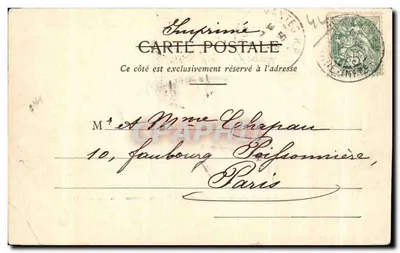 Imprimé
CARTE POSTALE
Ce côté est exclusivement réservé à l'adresse
Mr & Mme Chapau
10, faubourg Poissonnière,
Paris
44